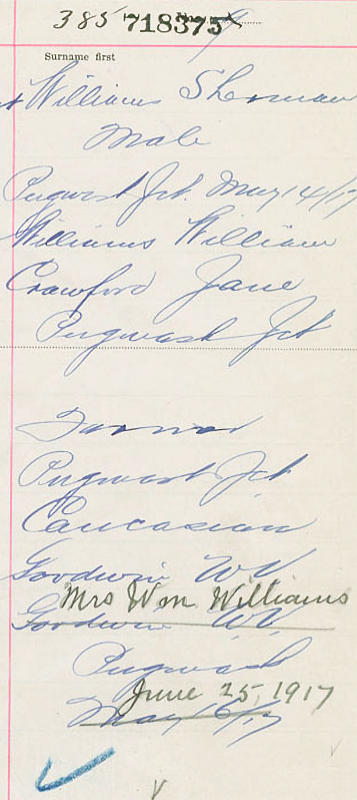 385 718375
Surname first
Williams Sherman
Male
Pugwash Jct. May 14/17
Williams William
Crawford Jane
Pugwash Jct
Farmer
Pugwash Jct
Caucasian
Goodwin
Mrs Wm Williams
Goodwin
Pugwash
June 25, 1917
May /17